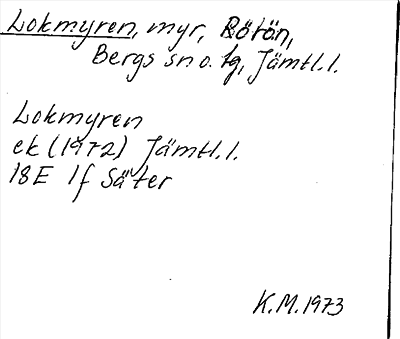 Lokmyren, myr, Rötön,
Bergs sn o. tg, Jämtl.l.
Lokmyren
ek (1972) Jämtl.l.
18E 1f Säter
K.M. 1973